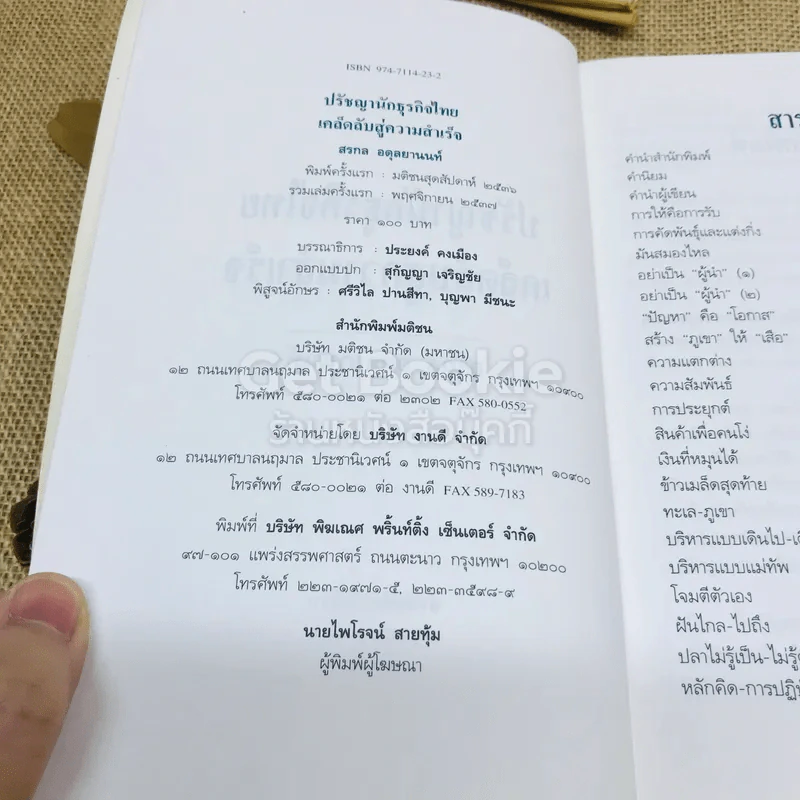 ISBN 974-7114-23-2
ปรัชญานักธุรกิจไทย
เคล็ดลับสู่ความสำเร็จ
สรกล อดุลยานนท์
พิมพ์ครั้งแรก : มติชนสุดสัปดาห์ ๒๕๓๖
รวมเล่มครั้งแรก : พฤศจิกายน ๒๕๓๗
ราคา ๑๐๐ บาท
บรรณาธิการ : ประยงค์ คงเมือง
ออกแบบปก : สุกัญญา เจริญชัย
พิสูจน์อักษร : ศรีวิไล ปานสีทา, บุญพา มีชนะ
สำนักพิมพ์มติชน
บริษัท มติชน จำกัด (มหาชน)
๑๒ ถนนเทศบาลนฤมาล ประชานิเวศน์ ๑ เขตจตุจักร กรุงเทพฯ ๑๐๙๐๐
โทรศัพท์ ๕๘๐-๐๐๒๑ ต่อ ๒๓๐๒ FAX 580-0552
จัดจำหน่ายโดย บริษัท งานดี จำกัด
๑๒ ถนนเทศบาลนฤมาล ประชานิเวศน์ ๑ เขตจตุจักร กรุงเทพฯ ๑๐๙๐๐
โทรศัพท์ ๕๘๐-๐๐๒๑ ต่อ งานดี FAX 589-7183
พิมพ์ที่ บริษัท พิฆเณศ พริ้นท์ติ้ง เซ็นเตอร์ จำกัด
๙๗-๑๐๑ แพร่งสรรพศาสตร์ ถนนตะนาว กรุงเทพฯ ๑๐๒๐๐
โทรศัพท์ ๒๒๓-๑๙๗๑-๕, ๒๒๓-๓๕๙๘-๙
นายไพโรจน์ สายทุ้ม
ผู้พิมพ์ผู้โฆษณา
Get Bookie
ร้านหนังสือบุ๊คกี้
สาร
คำนำสำนักพิมพ์
คำนิยม
คำนำผู้เขียน
การให้คือการรับ
การคัดพันธุ์และแต่งกิ่ง
มันสมองไหล
อย่าเป็น "ผู้นำ" (๑)
อย่าเป็น "ผู้นำ" (๒)
"ปัญหา" คือ "โอกาส"
สร้าง "ภูเขา" ให้ "เสือ"
ความแตกต่าง
ความสัมพันธ์
การประยุกต์
สินค้าเพื่อคนโง่
เงินที่หมุนได้
ข้าวเมล็ดสุดท้าย
ทะเล-ภูเขา
บริหารแบบเดินไป-เดิ
บริหารแบบแม่ทัพ
โจมตีตัวเอง
ฝันไกล-ไปถึง
ปลาไม่รู้เป็น-ไม่รู้
หลักคิด-การปฏิบั